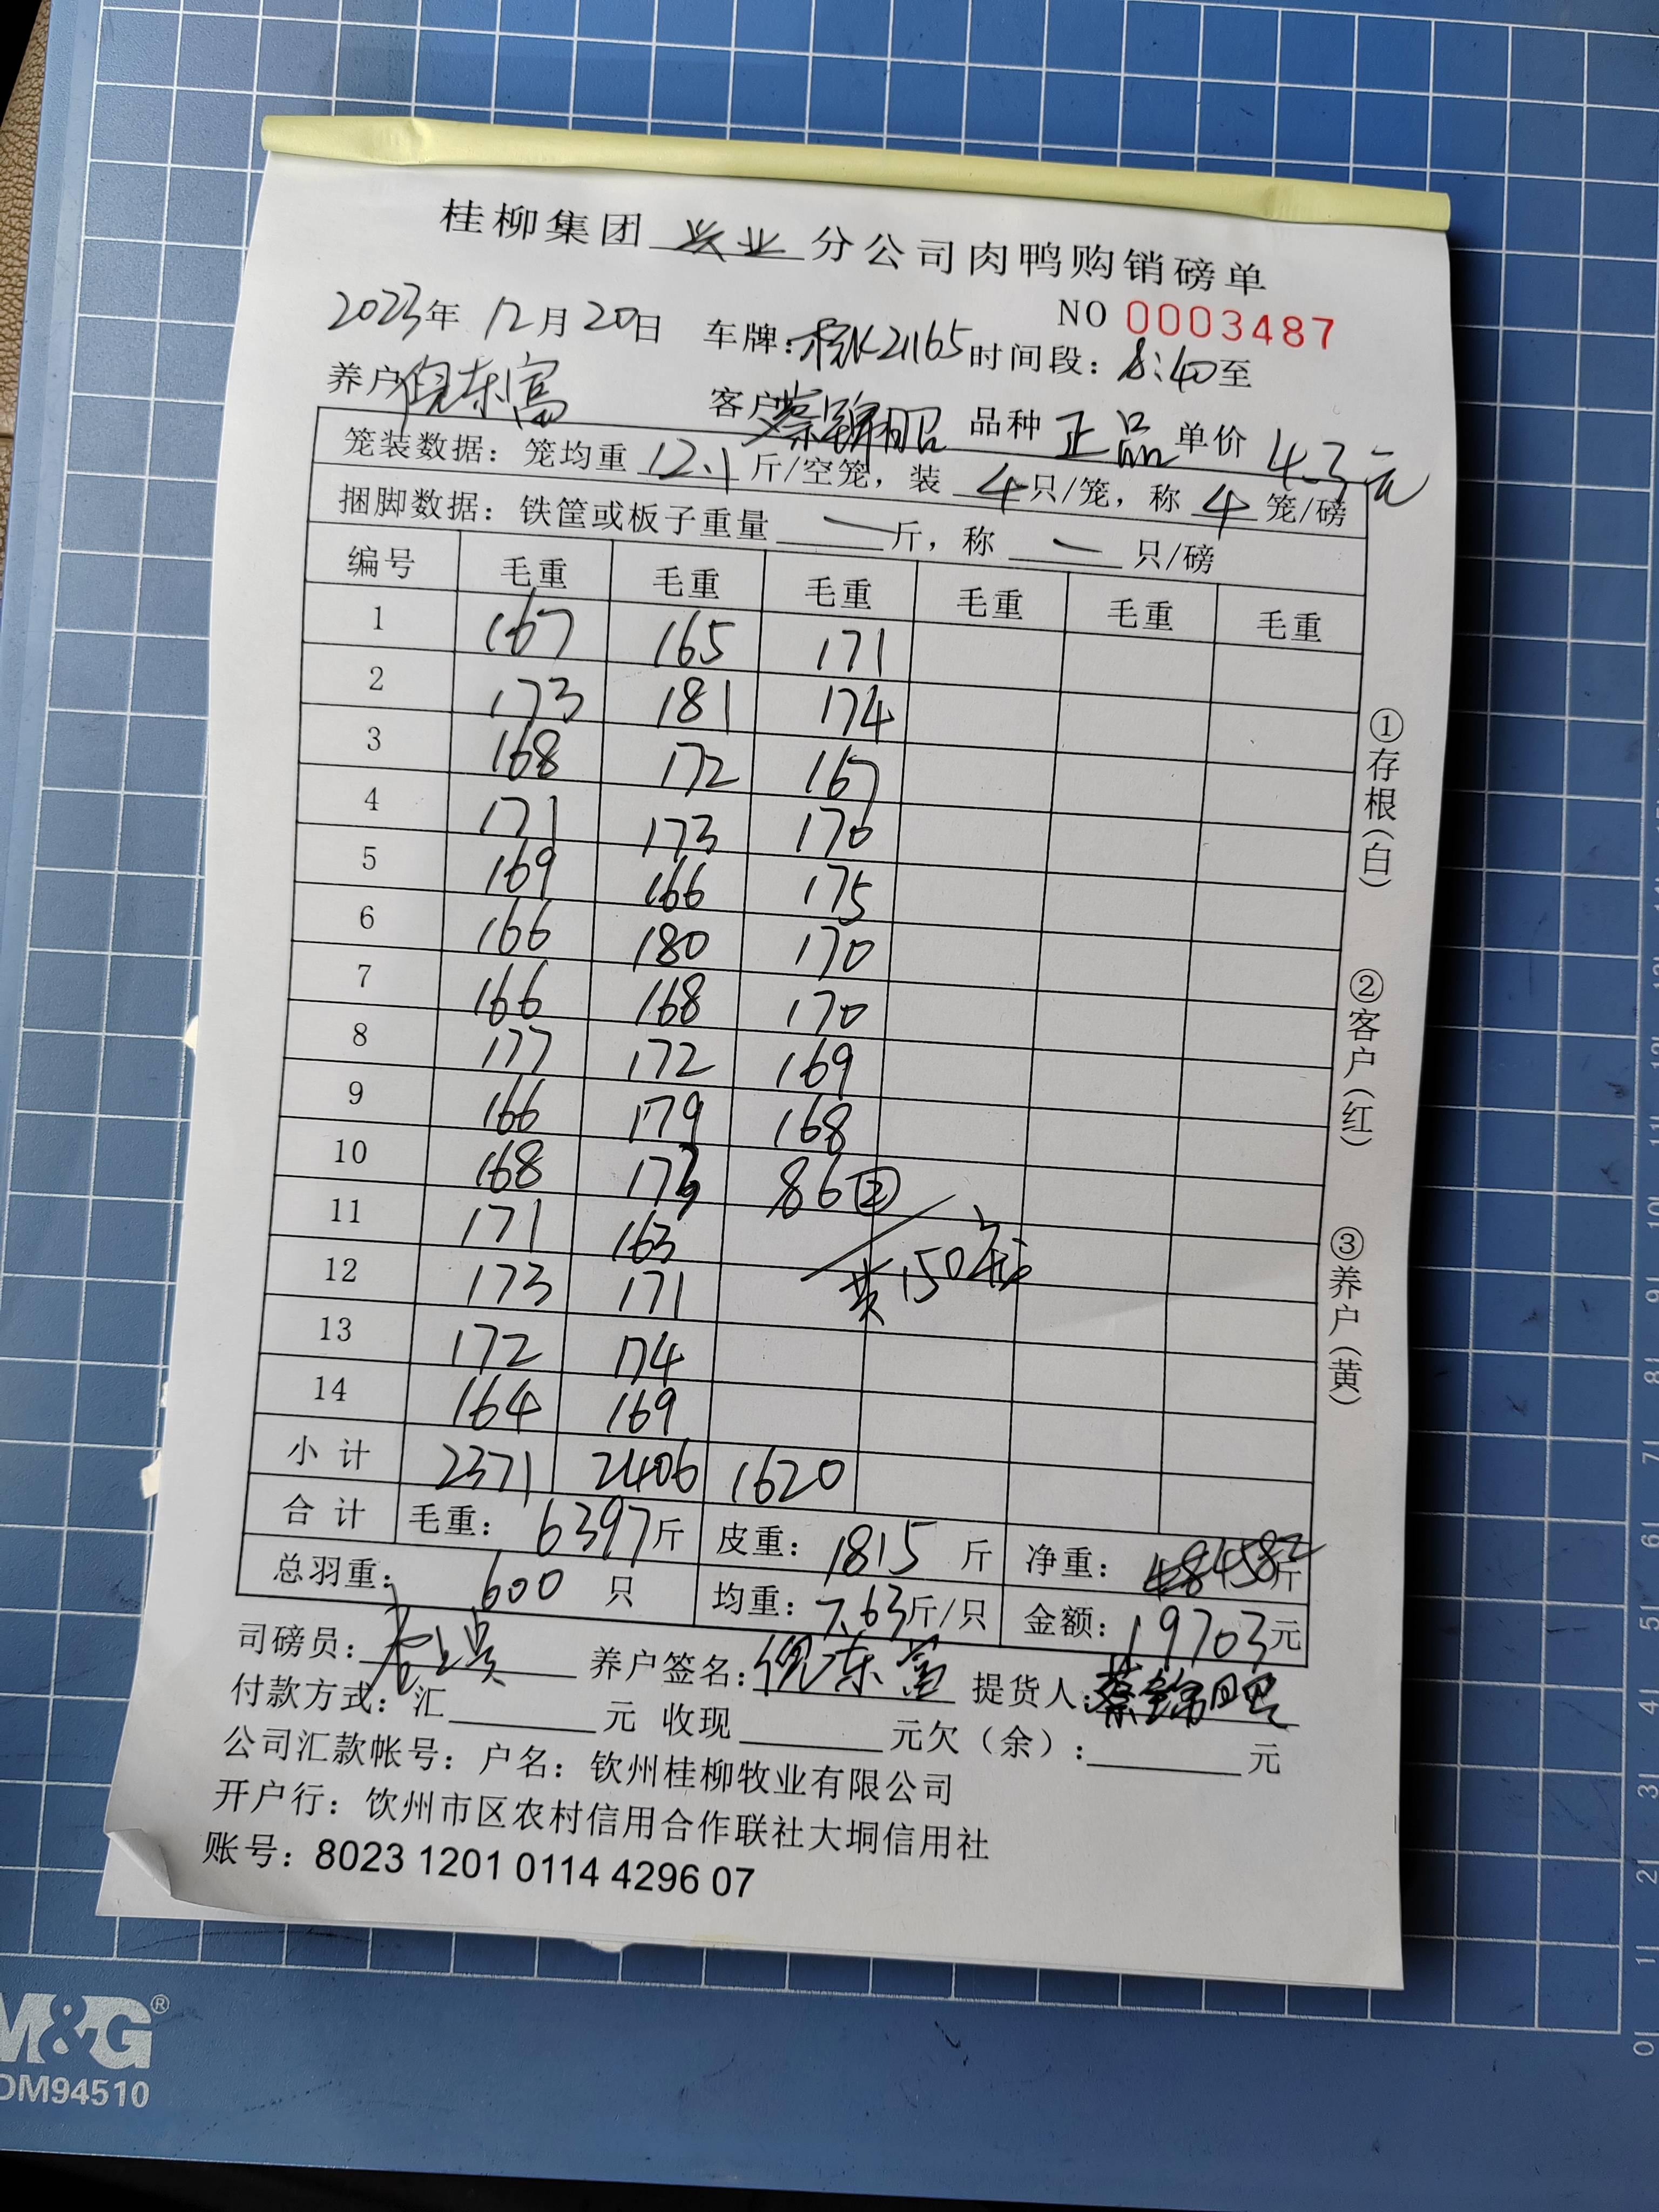 桂柳集团 兴业 分公司肉鸭购销磅单
NO 0003487
2023年 12月 20日 车牌:桂K21165 时间段: 8:40至
养户 倪东富 客户 蔡锦昭 品种 正品 单价 4.3元
笼装数据: 笼均重 12.1 斤/空笼, 装 4 只/笼, 称 4 笼/磅
捆脚数据: 铁筐或板子重量 — 斤, 称 — 只/磅
编号 毛重 毛重 毛重 毛重 毛重 毛重
1 167 165 171
2 173 181 174
3 168 172 167
4 171 173 170
5 169 166 175
6 166 180 170
7 166 168 170
8 177 172 169
9 166 179 168
10 168 173 86②
11 171 163
共150笼
12 173 171
13 172 174
14 164 169
小计 2371 2406 1620
合计 毛重: 6397斤 皮重: 1815 斤 净重: 4582斤
总羽重: 600 只 均重: 7.63斤/只 金额: 19703元
司磅员: 养户签名: 倪东富 提货人: 蔡锦昭
付款方式: 汇 元 收现 元欠(余): 元
公司汇款帐号: 户名: 钦州桂柳牧业有限公司
开户行: 钦州市区农村信用合作联社大垌信用社
账号: 8023 1201 0114 4296 07
①存根(白)
②客户(红)
③养户(黄)
M&G®
DM94510